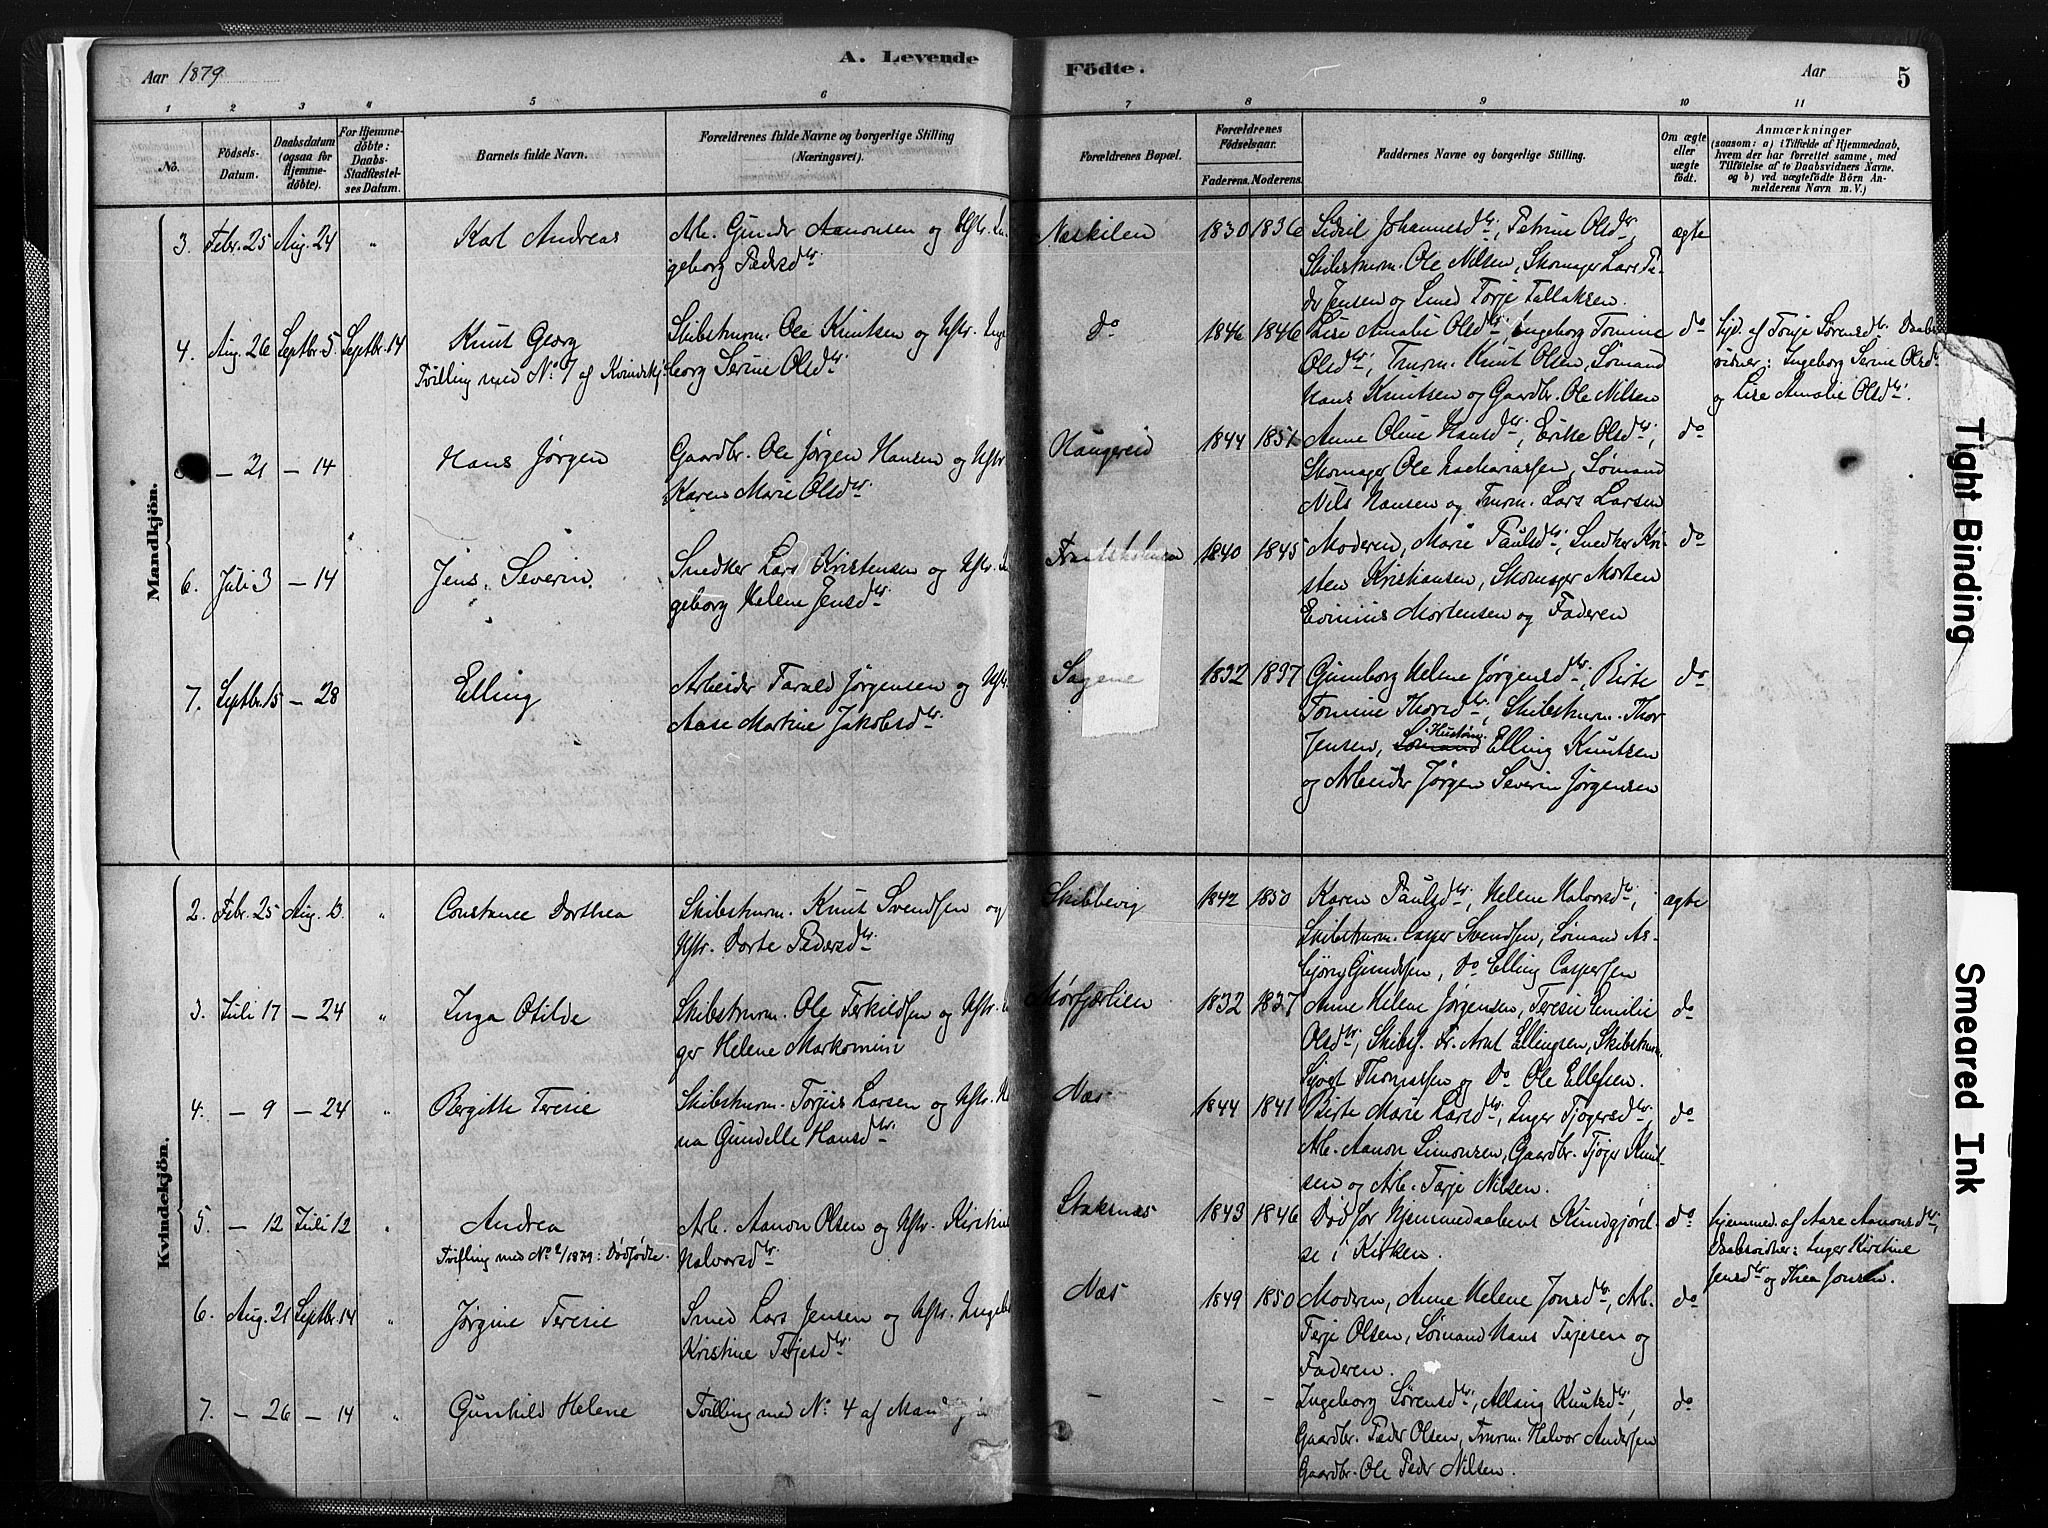 Aar 1879
A. Levende
Födte.
Aar
5
1 2 3 4 5 6 7 8 9 10 11
No.
Födsels-Datum.
Daabsdatum (ogsaa for Hjemmedöbte).
For Hjemmedöbte: Daabs-Stadfæstelses Datum.
Barnets fulde Navn.
Forældrenes fulde Navne og borgerlige Stilling (Næringsvei).
Forældrenes Bopæl.
Forældrenes Födselsaar.
Faderens. Moderens.
Faddernes Navne og borgerlige Stilling.
Om ægte eller uægte født.
Anmærkninger
(saasom: a) i Tilfælde af Hjemmedaab,
hvem der har forrettet samme, med
Tilföielse af to Daabsvidners Navne,
og b) ved uægtefödte Börn Anmelderens Navn m. V.)
Mandkjön.
3. Febr. 25 Aug. 24 " Karl Andreas
Arb. Gunder Aanonsen og Hstr. In-
geborg Pedersdtr.
Næskilen 1830 1836
Sidsel Johannesdtr., Petrine Olsdtr.,
Skibstmrm. Ole Nilsen, Skomager Lars Pe-
der Jensen og Smed Terje Tallaksen.
ægte
4. Aug. 26 Septbr. 5 Septbr. 14 Knut Georg
Tvilling med No 7 af Kvindekj.
Skibstmrm. Ole Knutsen og Hstr. Inge
borg Serine Olsdtr.
do 1846 1846
Lise Amalie Olsdtr., Ingeborg Tomine
Olsdtr., Tmrm. Knut Olsen, Sømand
Hans Knutsen og Gaardbr. Ole Nilsen
do
hjd. af Tonje Sørensdtr. Daabs
vidner: Ingeborg Serine Olsdtr.
og Lise Amalie Olsdtr.
— 21 — 14 Hans Jørgen
Gaardbr. Ole Jørgen Hansen og Hstr.
Karen Marie Olsdtr.
Haugereid 1844 1851
Anne Oline Hansdtr., Erike Olsdtr.,
Skomager Ole Zachariassen, Sømand
Nils Hansen og Tmrm. Lars Larsen
do
6. Juli 3 — 14 Jens Severin
Snedker Lars Kristensen og Hstr. In
geborg Helene Jensdtr.
1840 1845
Moderen, Marie Paulsdtr., Snedker Kri-
sten Kristiansen, Skomager Morten
Edinius Mortensen og Faderen
do
7. Septbr. 15 — 28 Elling
Arbeider Tarald Jørgensen og Hstr.
Aase Martine Jakobsdtr.
Sagene 1832 1837
Gunborg Helene Jørgensdtr., Birte
Tomine Thorsdtr., Skibstmrm. Thor
Jensen, Sømand Hustøm. Elling Knutsen
og Arbeider Jørgen Severin Jørgensen
do
Kvindekjön.
2. Febr. 25 Aug. 10 " Constance Dorthea
Skibstmrm. Knut Svendsen og
Hstr. Dorte Pedersdtr.
Skibbevig 1842 1850
Karen Paulsdtr., Helene Halvorsdtr.,
Skibstmrm. Casper Svendsen, Sømand As-
bjørn Gundersen, do Elling Caspersen
ægte
3. Juli 17 — 24 " Inga Otilde
Skibstmrm. Ole Terkildsen og Hstr. In
ger Helene Markomine
Mørfjærlien 1832 1837
Anne Helene Jørgensen, Teresie Emilie
Olsdtr., Skibsf. Fr. Arnt Ellingsen, Skibstmrm.
Sjovt Thomassen og do Ole Ellefsen.
do
4. — 9 — 24 " Bergitte Teresie
Skibstmrm. Torjus Larsen og Hstr.
na Gundelle Hansdtr.
Næs 1844 1841
Birte Marie Larsdtr., Inger Tjøgersdtr.,
Arb. Aanon Simonsen, Gaardbr. Tjøger Knut-
sen og Arb. Terje Nilsen.
do
5. — 12 Juli 12 " Andrea
Tvilling med No 2/1879: Dødfødte.
Arb. Aanon Olsen og Hstr. Kirstine
Halvorsdtr.
Staksnæs 1843 1846
Død før Hjemmedaabens Kundgjørel-
se i Kirken.
do
hjemmed. af Aase Aanonsdtr.,
Daabsvidner: Inger Kirstine
Jensdtr. og Thea Jonsen.
6. Aug. 21 Septbr. 14 " Jørgine Teresie
Smed Lars Jensen og Hstr. Ingeb
Kristine Terjesdtr.
Næs 1849 1850
Moderen, Anne Helene Jonsdtr., Arb.
Terje Olsen, Sømand Hans Terjesen og
Faderen.
do
7. — 26 — 14 " Gunhild Helene
Tvilling med No 4 af Mand
— — —
Ingeborg Sørensdtr., Allsing Knutsdtr.,
Gaardbr. Peder Olsen, Tmrm. Halvor Andersen
Gaardbr. Ole Peder Nilsen.
do
Tight Binding
Smeared Ink